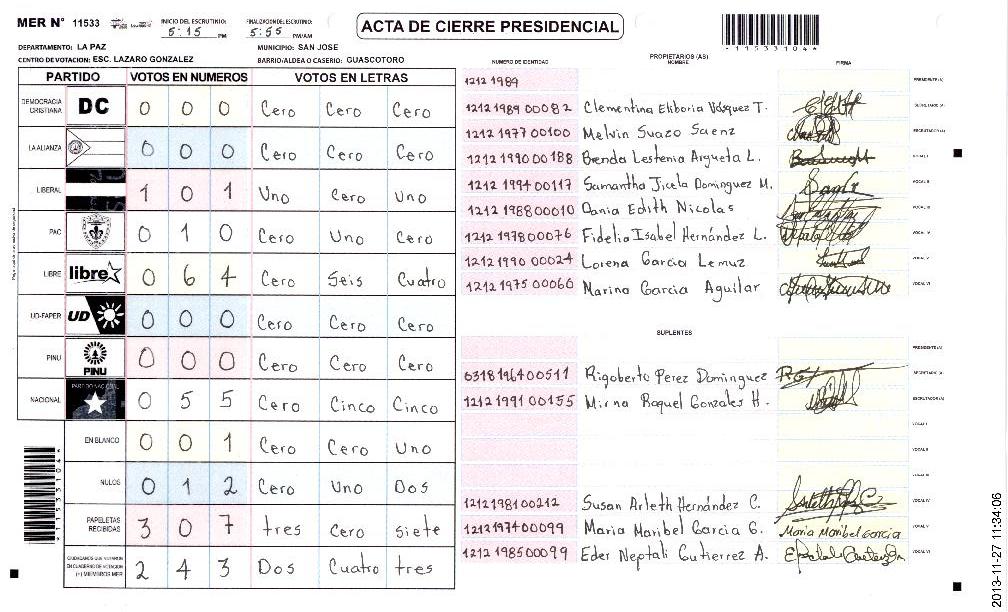 MER N° 11533
INICIO DEL ESCRUTINIO: 5:15 PM
FINALIZACION DEL ESCRUTINIO: 5:55 PM/AM
ACTA DE CIERRE PRESIDENCIAL
-11533104-
DEPARTAMENTO: LA PAZ
MUNICIPIO: SAN JOSE
CENTRO DE VOTACION: ESC. LAZARO GONZALEZ
BARRIO/ALDEA O CASERIO: GUASCOTORO
PARTIDO VOTOS EN NUMEROS VOTOS EN LETRAS
DEMOCRACIA CRISTIANA DC 0 0 0 Cero Cero Cero
LA ALIANZA 0 0 0 Cero Cero Cero
LIBERAL 1 0 1 Uno Cero Uno
PAC 0 1 0 Cero Uno Cero
LIBRE libre 0 6 4 Cero Seis Cuatro
UD-FAPER UD 0 0 0 Cero Cero Cero
PINU PINU 0 0 0 Cero Cero Cero
NACIONAL PARTIDO NACIONAL 0 5 5 Cero Cinco Cinco
EN BLANCO 0 0 1 Cero Cero Uno
NULOS 0 1 2 Cero Uno Dos
PAPELETAS RECIBIDAS 3 0 7 tres Cero siete
CIUDADANOS QUE VOTARON EN CUADERNO DE VOTACION (+) MIEMBROS MER 2 4 3 Dos Cuatro tres
*11533104*
PROPIETARIOS (AS)
NUMERO DE IDENTIDAD NOMBRE FIRMA
1212 1989 PRESIDENTE(A)
1212 1989 00082 Clementina Eliboria Vásquez T. SECRETARIO (A)
1212 1977 00100 Melvin Suazo Saenz ESCRUTADOR(A)
1212 1990 00188 Brenda Lestenia Argueta L. VOCAL I
1212 1994 00117 Samantha Jicela Dominguez M. VOCAL II
1212 1988 00010 Dania Edith Nicolas VOCAL III
1212 1978 00076 Fidelia Isabel Hernández L. VOCAL IV
1212 1990 00024 Lorena Garcia Lemuz VOCAL V
1212 1975 00060 Marina Garcia Aguilar VOCAL VI
SUPLENTES
PRESIDENTE(A)
0318 1964 00511 Rigoberto Perez Dominguez SECRETARIO (A)
1212 1991 00155 Mirna Raquel Gonzales H. ESCRUTADOR(A)
VOCAL I
VOCAL II
VOCAL III
1212 1981 00212 Susan Arleth Hernández C. VOCAL IV
1212 1974 00099 Maria Maribel Garcia G. Maria Maribel Garcia VOCAL V
1212 1985 00099 Eder Neptali Gutierrez A. VOCAL VI
2013-11-27 11:34:06